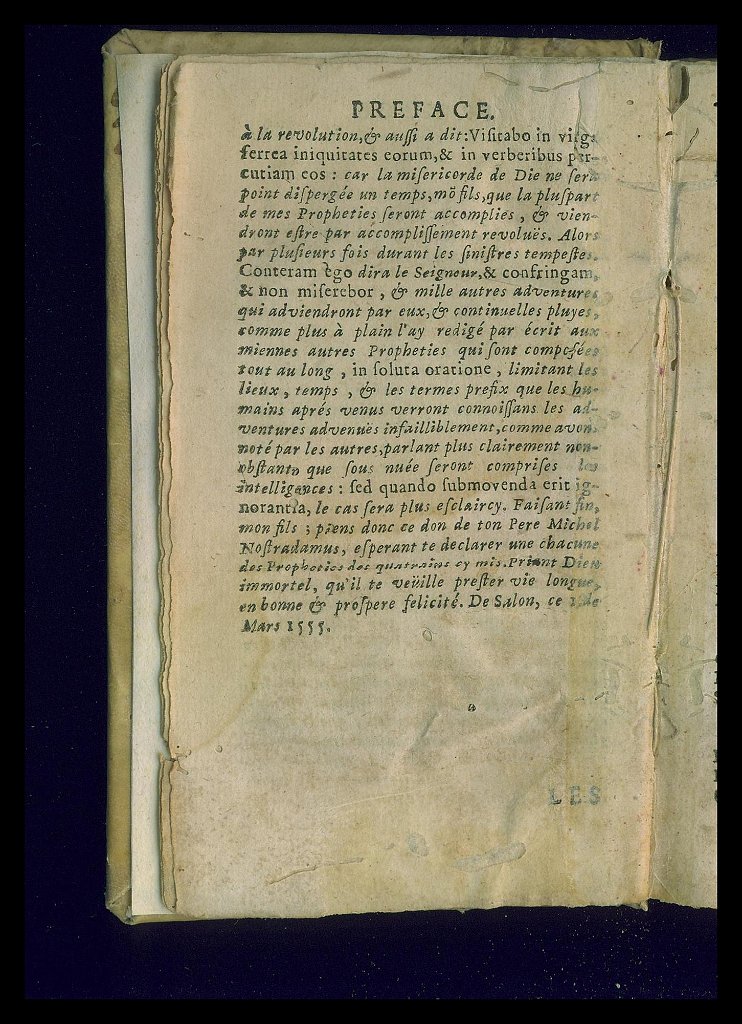 PREFACE.
à la revolution,& auſſi a dit:Viſitabo in virga
ferrea iniquitates eorum,& in verberibus per-
cutiam eos : car la miſericorde de Die ne ſera
point diſpergée un temps,mõ fils,que la pluſpart
de mes Propheties ſeront accomplies , & vien-
dront eſtre par accompliſſement revoluës. Alors
par pluſieurs fois durant les ſiniſtres tempeſtes.
Conteram ego dira le Seigneur,& confringam,
& non miſerebor , & mille autres adventures
qui adviendront par eux,& continuelles pluyes,
comme plus à plain l'ay redigé par écrit aux
miennes autres Propheties qui ſont compoſées
tout au long , in ſoluta oratione , limitant les
lieux , temps , & les termes prefix que les hu-
mains aprés venus verront connoiſſans les ad-
ventures advenuës infailliblement,comme avons
noté par les autres,parlant plus clairement non-
obſtant que ſous nuée ſeront compriſes les
intelligences : ſed quando ſubmovenda erit ig-
norantia, le cas ſera plus eſclaircy. Faiſant fin,
mon fils ; prens donc ce don de ton Pere Michel
Noſtradamus, eſperant te declarer une chacune
des Propheties des quatrains cy mis.Priant Dieu
immortel, qu'il te veüille preſter vie longue,
en bonne & proſpere felicité. De Salon, ce de
Mars 1555.
LES